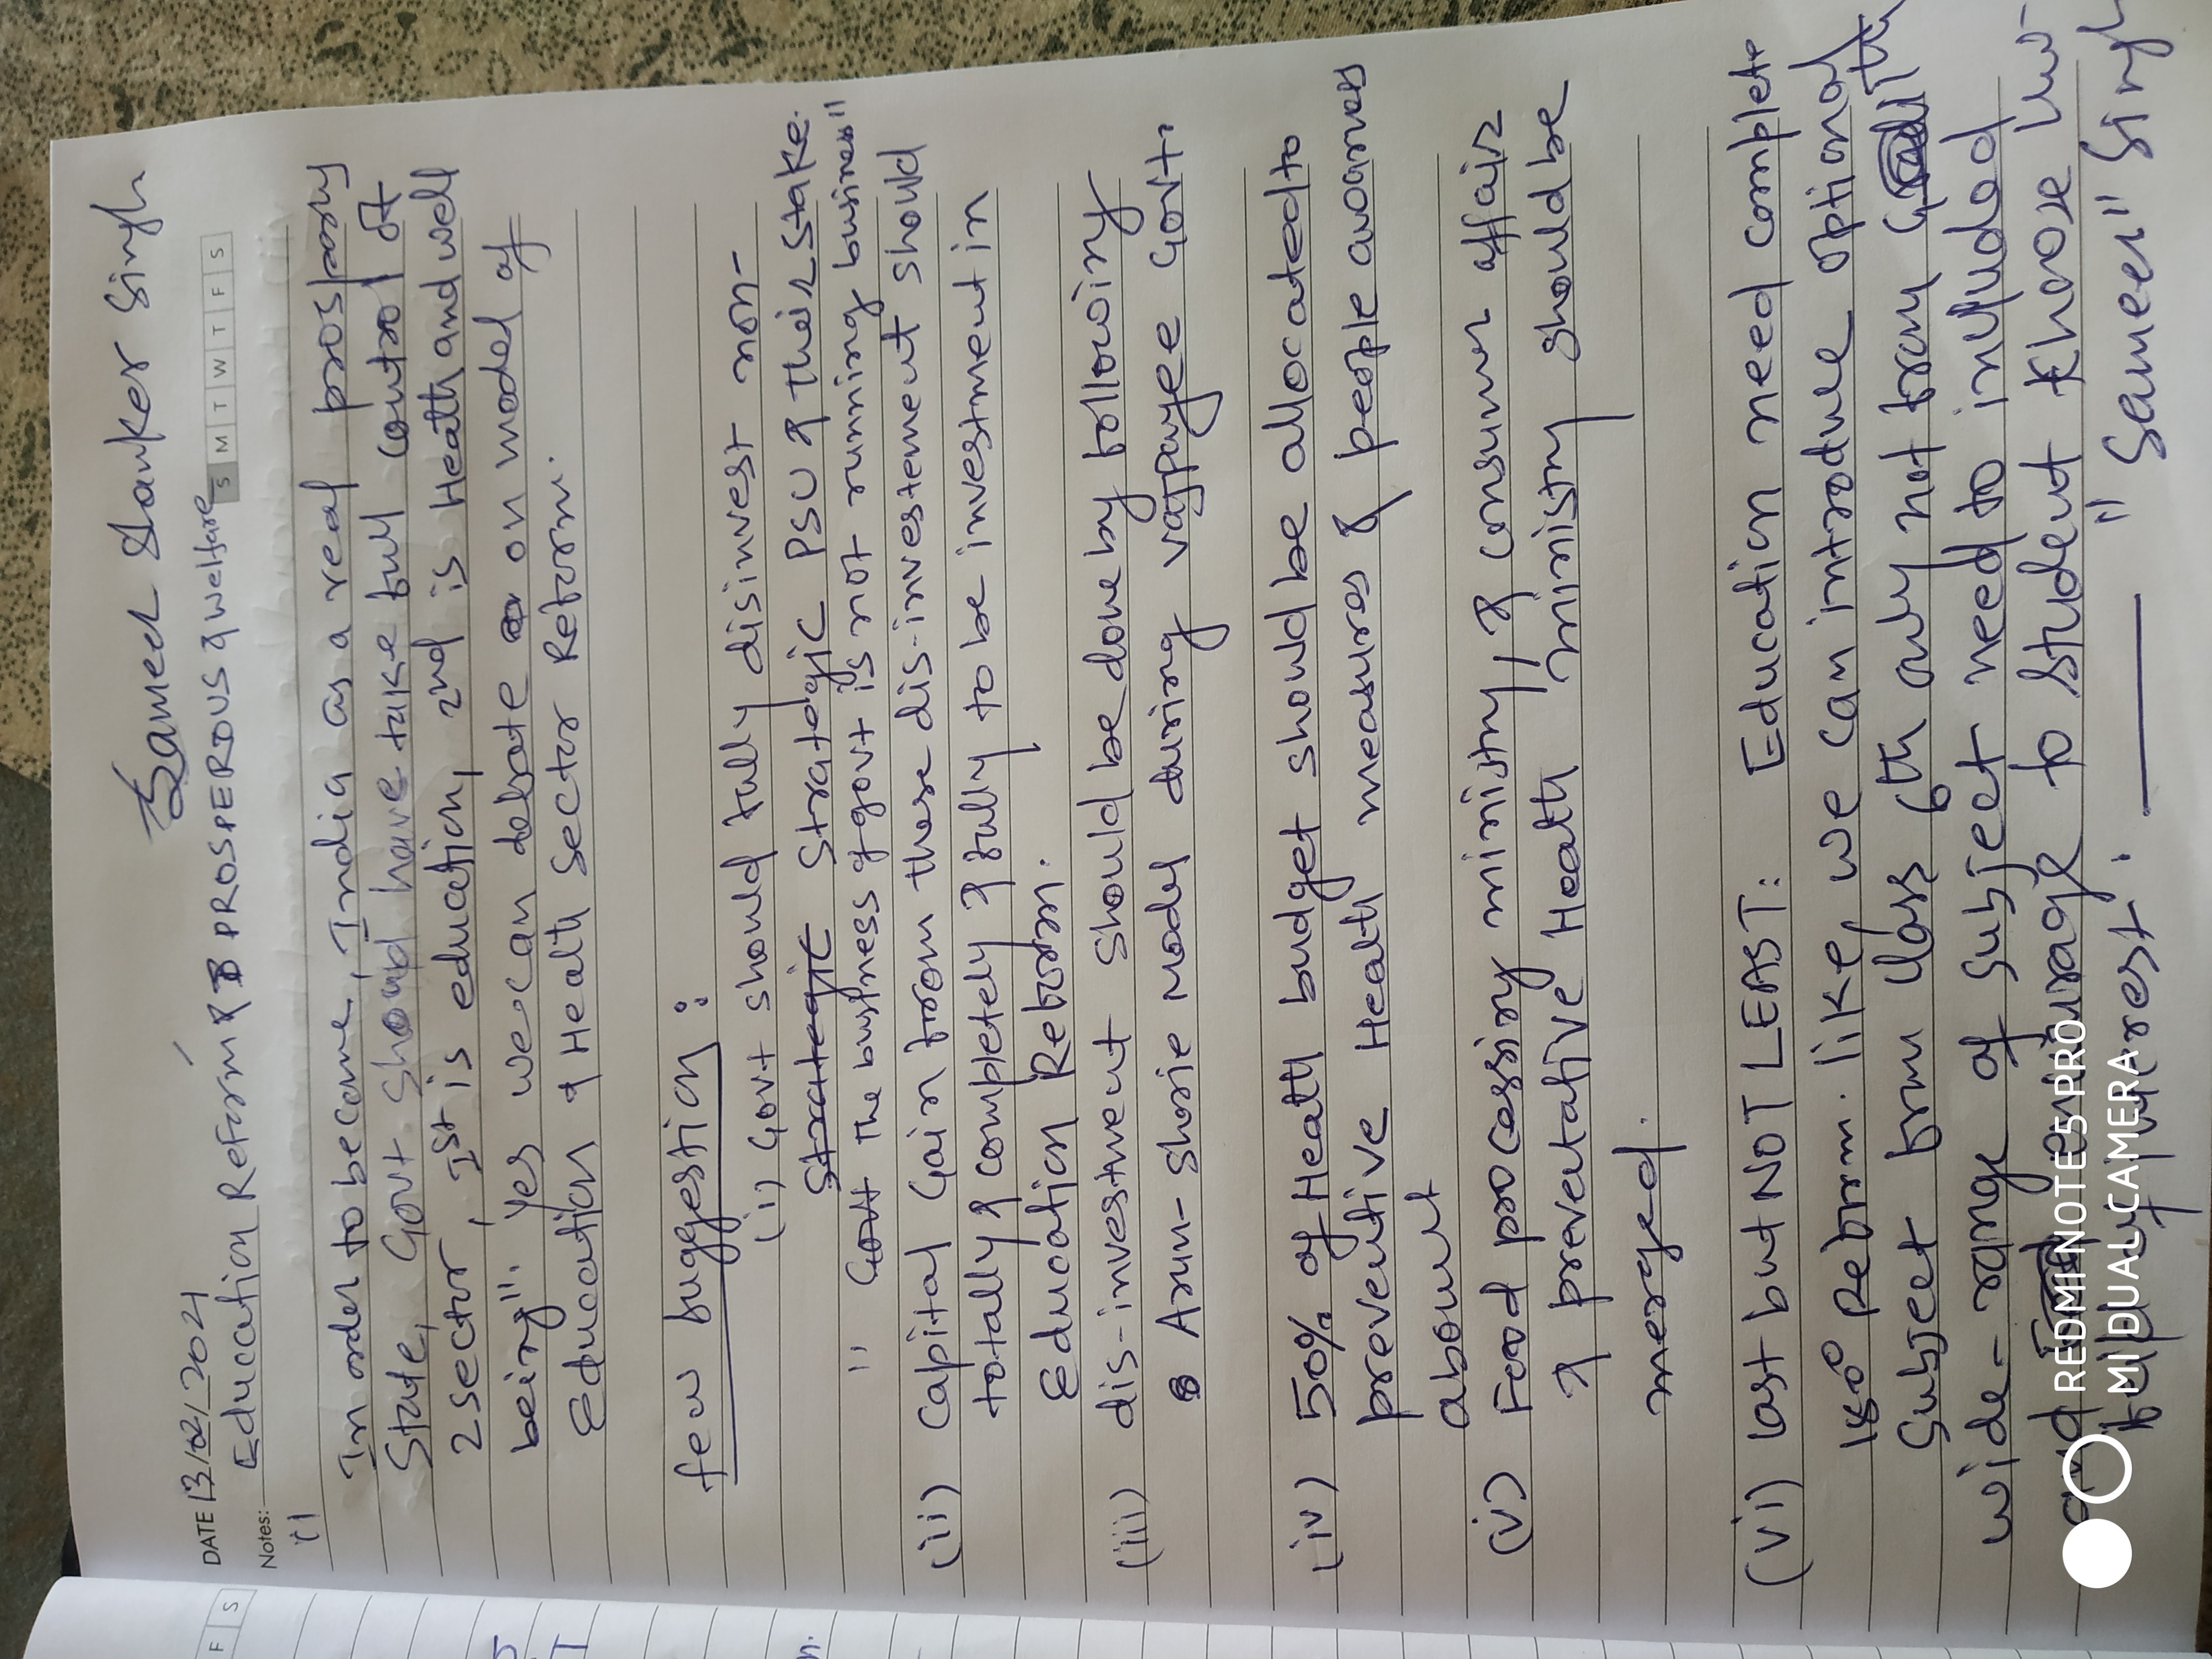 Sameer Shanker Singh
DATE 13/02/2021
S M T W T F S
Notes: Education Reform & PROSPEROUS & welfare
"
In order to become, India as a real prosperous
State, Govt should have take full control of
2 sector, Ist is education, 2nd is Health and well
being". Yes we can debate on model of
Education & Health Sector Reform.
few suggestion:
(i) Govt should fully disinvest non-
Strategic Strategic PSU & their stake.
" Govt The business of govt is not running business"
(ii) Capital Gain from these dis-investement should
totally & completely & fully to be investment in
Education Reform.
(iii) dis-investment should be done by following
Arun-Shorie Model during vajpayee Govt.
(iv) 50% of Health budget should be allocated to
preventive Health measures & people awarness
about
(v) Food processing ministry, & consumer affair
& preventative Health ministry should be
merged.
(vi) last but NOT LEAST: Education need complete
180° Reform. like, we can introduce optional
Subject from class 6th only not from 9th
wide-range of subject need to included
and encourage to student
interest.
" Sameer" Singh
F S
REDMI NOTE 5 PRO
MI DUAL CAMERA